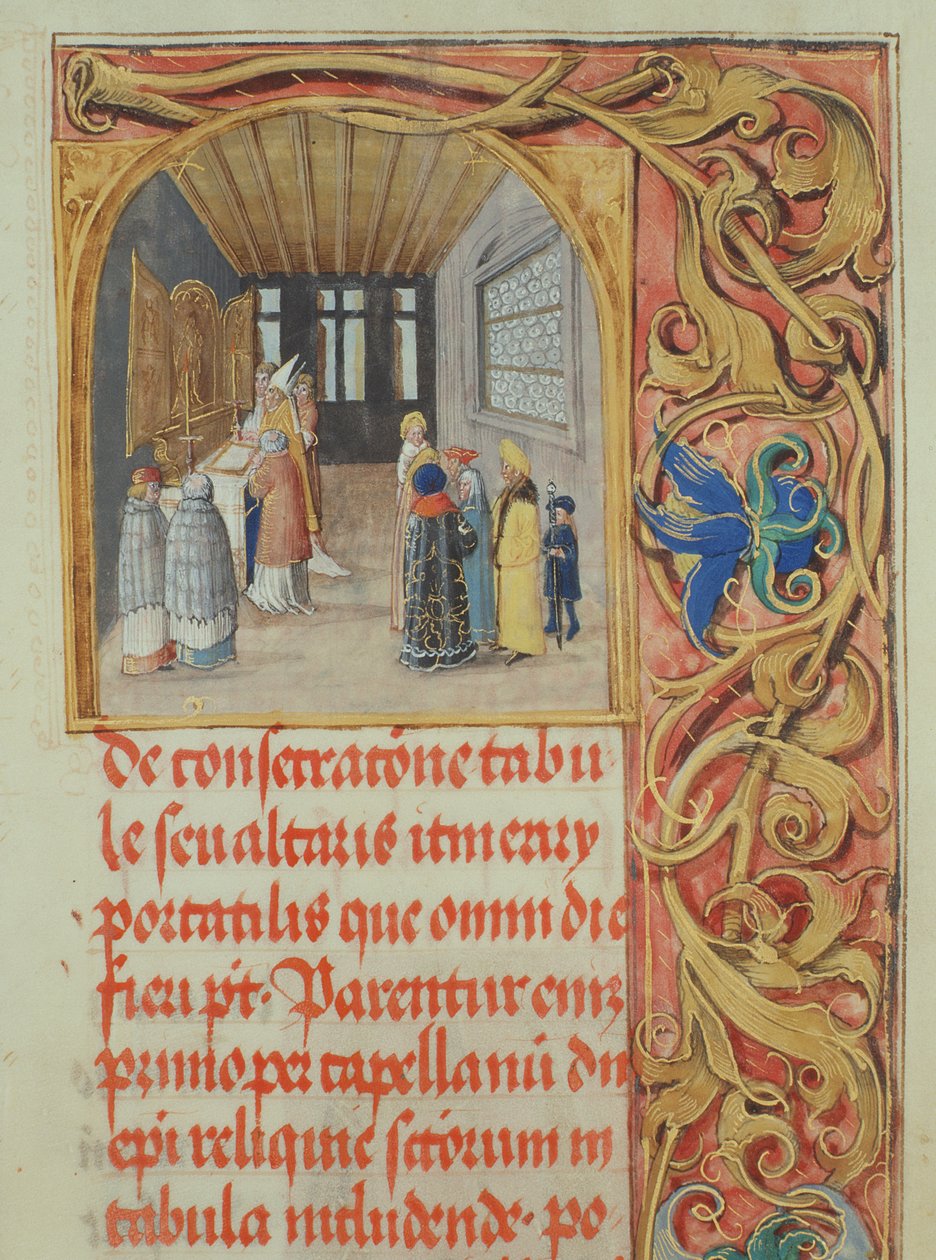 De consecratōne tabu
le seu altaris itinerarij
portatilis que omni die
fieri pt̄. Parentur enīz
primo per capellanū dn̄i
ep̄i reliquie sc̄torum in
tabula includende. po-